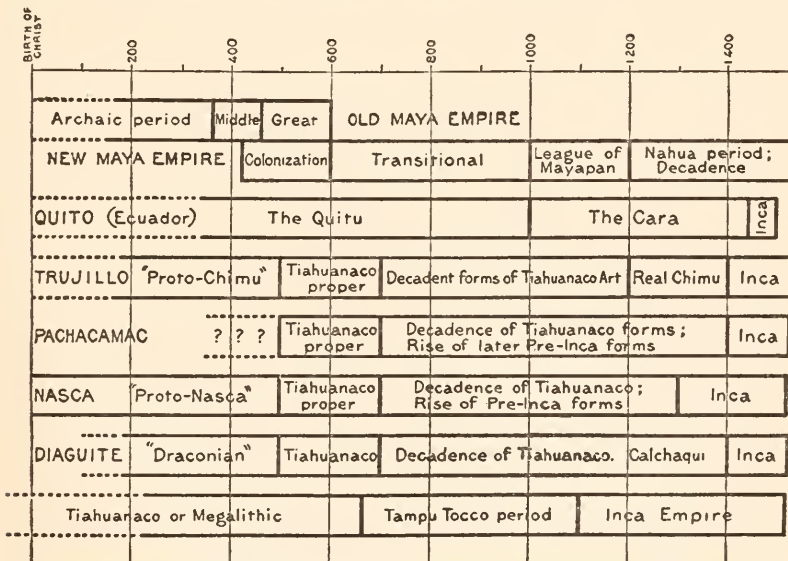 BIRTH OF
CHRIST
200
400
600
800
1000
1200
1400
Archaic period Middle Great OLD MAYA EMPIRE
NEW MAYA EMPIRE Colonization Transitional League of Mayapan Nahua period; Decadence
QUITO (Ecuador) The Quitu The Cara Inca
TRUJILLO "Proto-Chimu" Tiahuanaco proper Decadent forms of Tiahuanaco Art Real Chimu Inca
PACHACAMAC ? ? ? Tiahuanaco proper Decadence of Tiahuanaco forms; Rise of later Pre-Inca forms Inca
NASCA "Proto-Nasca" Tiahuanaco proper Decadence of Tiahuanaco; Rise of Pre-Inca forms Inca
DIAGUITE "Draconian" Tiahuanaco Decadence of Tiahuanaco. Calchaqui Inca
Tiahuanaco or Megalithic Tampu Tocco period Inca Empire